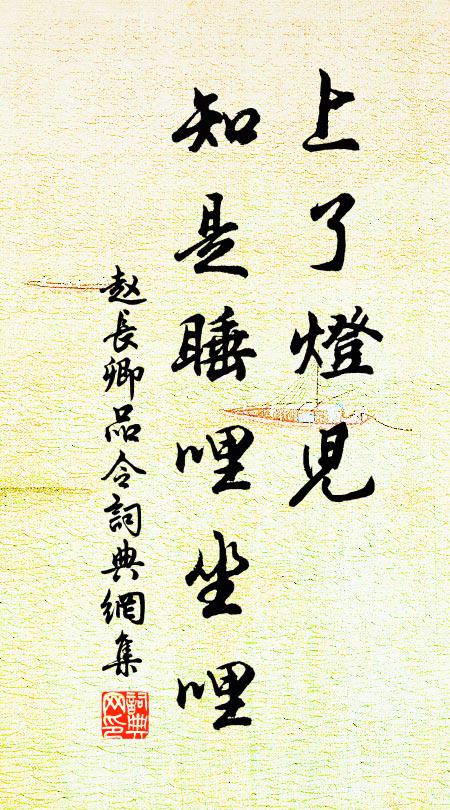 上了燈兒
知是睡哩坐哩
赵長卿品令詞典網集
詞典
网印